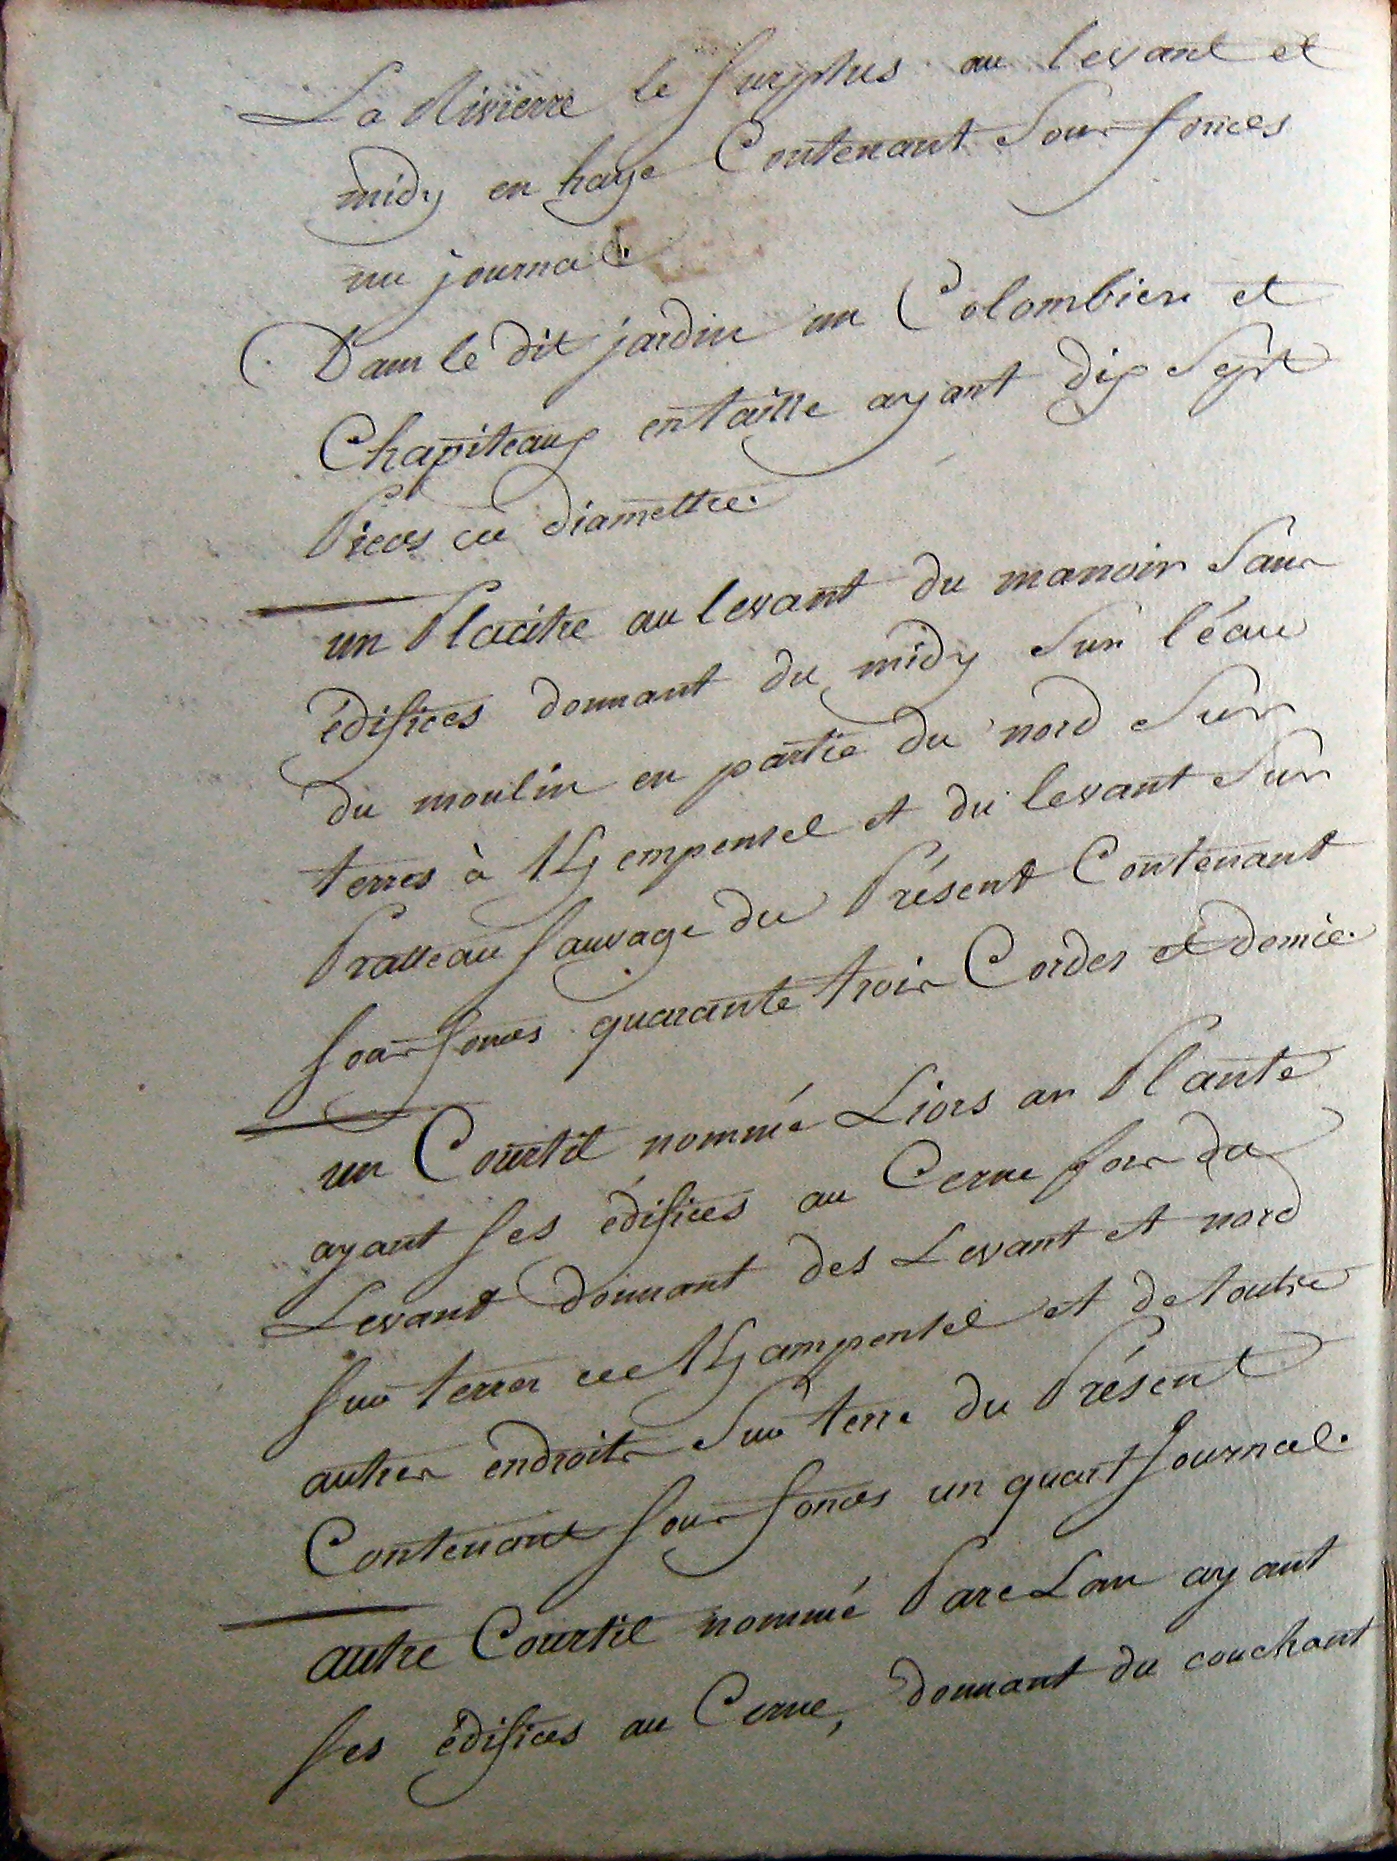 La Rivierre le surplus au levant et
midy en haye Contenant sous fonces
un journal
Dans le dit jardin un Colombier et
Chapiteaux en taille ayant dix sept
Pieds de diamettre.
un Placitre au levant du manoir sans
édifices donnant du midy sur l'éau
du moulin en partie du nord sur
terres à Kempensel et du levant sur
Pratteau sauvage du Présent Contenant
sous fonces quarante trois Cordes et demie.
un Courtil nommé Liors an Plante
ayant ses édifices au Cerne fors du
Levant donnant des Levant et nord
sur terres de Kampensel et de toutre
autres endroits sur terre du Présent
Contenant sous fonces un quart Journal.
autre Courtil nommé Parc Lan ayant
ses édifices au Cerne, donnant du couchant